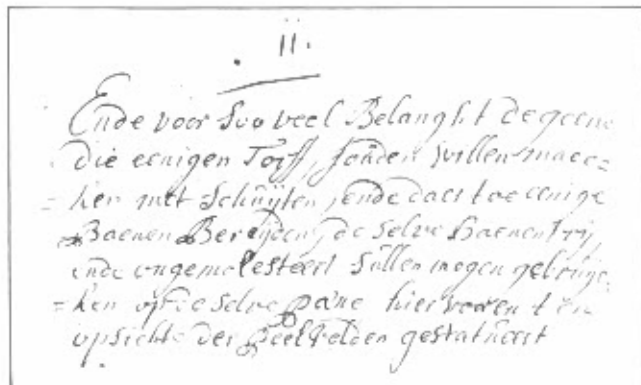 . 11.
Ende voor soo veel Belanght de geene
die eenigen Torff, souden willen maec=
=ken met Schuijten, ende daer toe eenige
Baenen Bereijden, de selve Baenen vrij,
ende ongemolesteert sullen mogen gebruije
=ken op de selve pene hier voren ten
opsichte der Peelvelden gestatueert